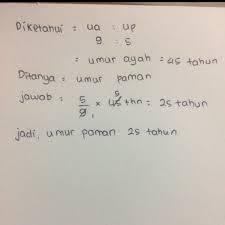 Diketahui = ua : up
9 : 5
= umur ayah = 45 tahun
Ditanya = umur paman
jawab = 5/9 × 45 thn = 25 tahun
5
1
jadi, umur paman 25 tahun